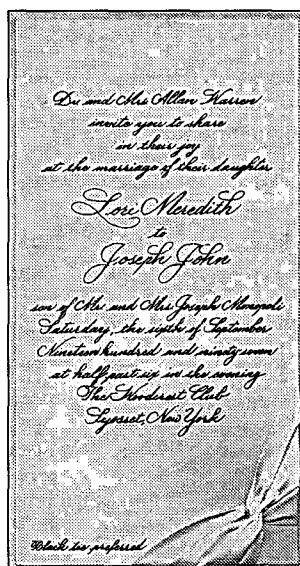 Dr and Mrs Allan Warren
invite you to share
in their joy
at the marriage of their daughter
Lori Meredith
to
Joseph John
son of Mr and Mrs Joseph Monopoli
Saturday, the sixth of September
Nineteen hundred and ninety seven
at half past six in the evening
The Woodcrest Club
Syosset, New York
Black tie preferred